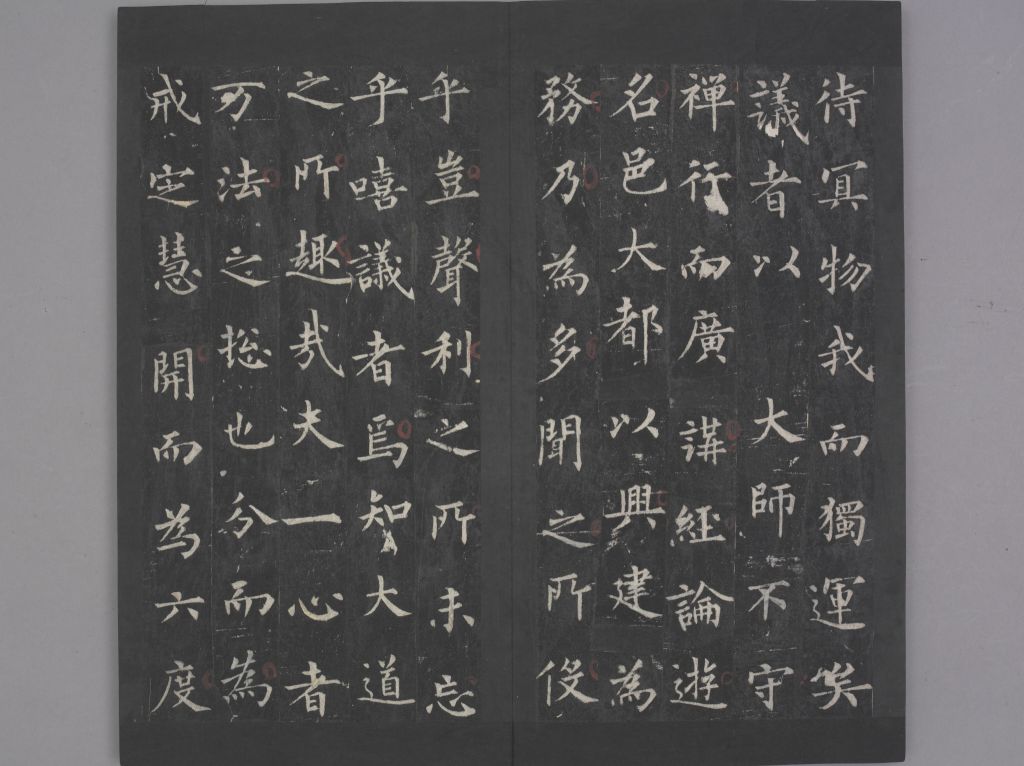 待冥物我而獨運矣
議者以大師不守
禪行而廣講經論遊
名邑大都以興建為
務乃為多聞之所役
乎豈聲利之所未忘
乎嘻議者焉知大道
之所趣哉夫一心者
万法之揔也分而為
戒定慧開而為六度